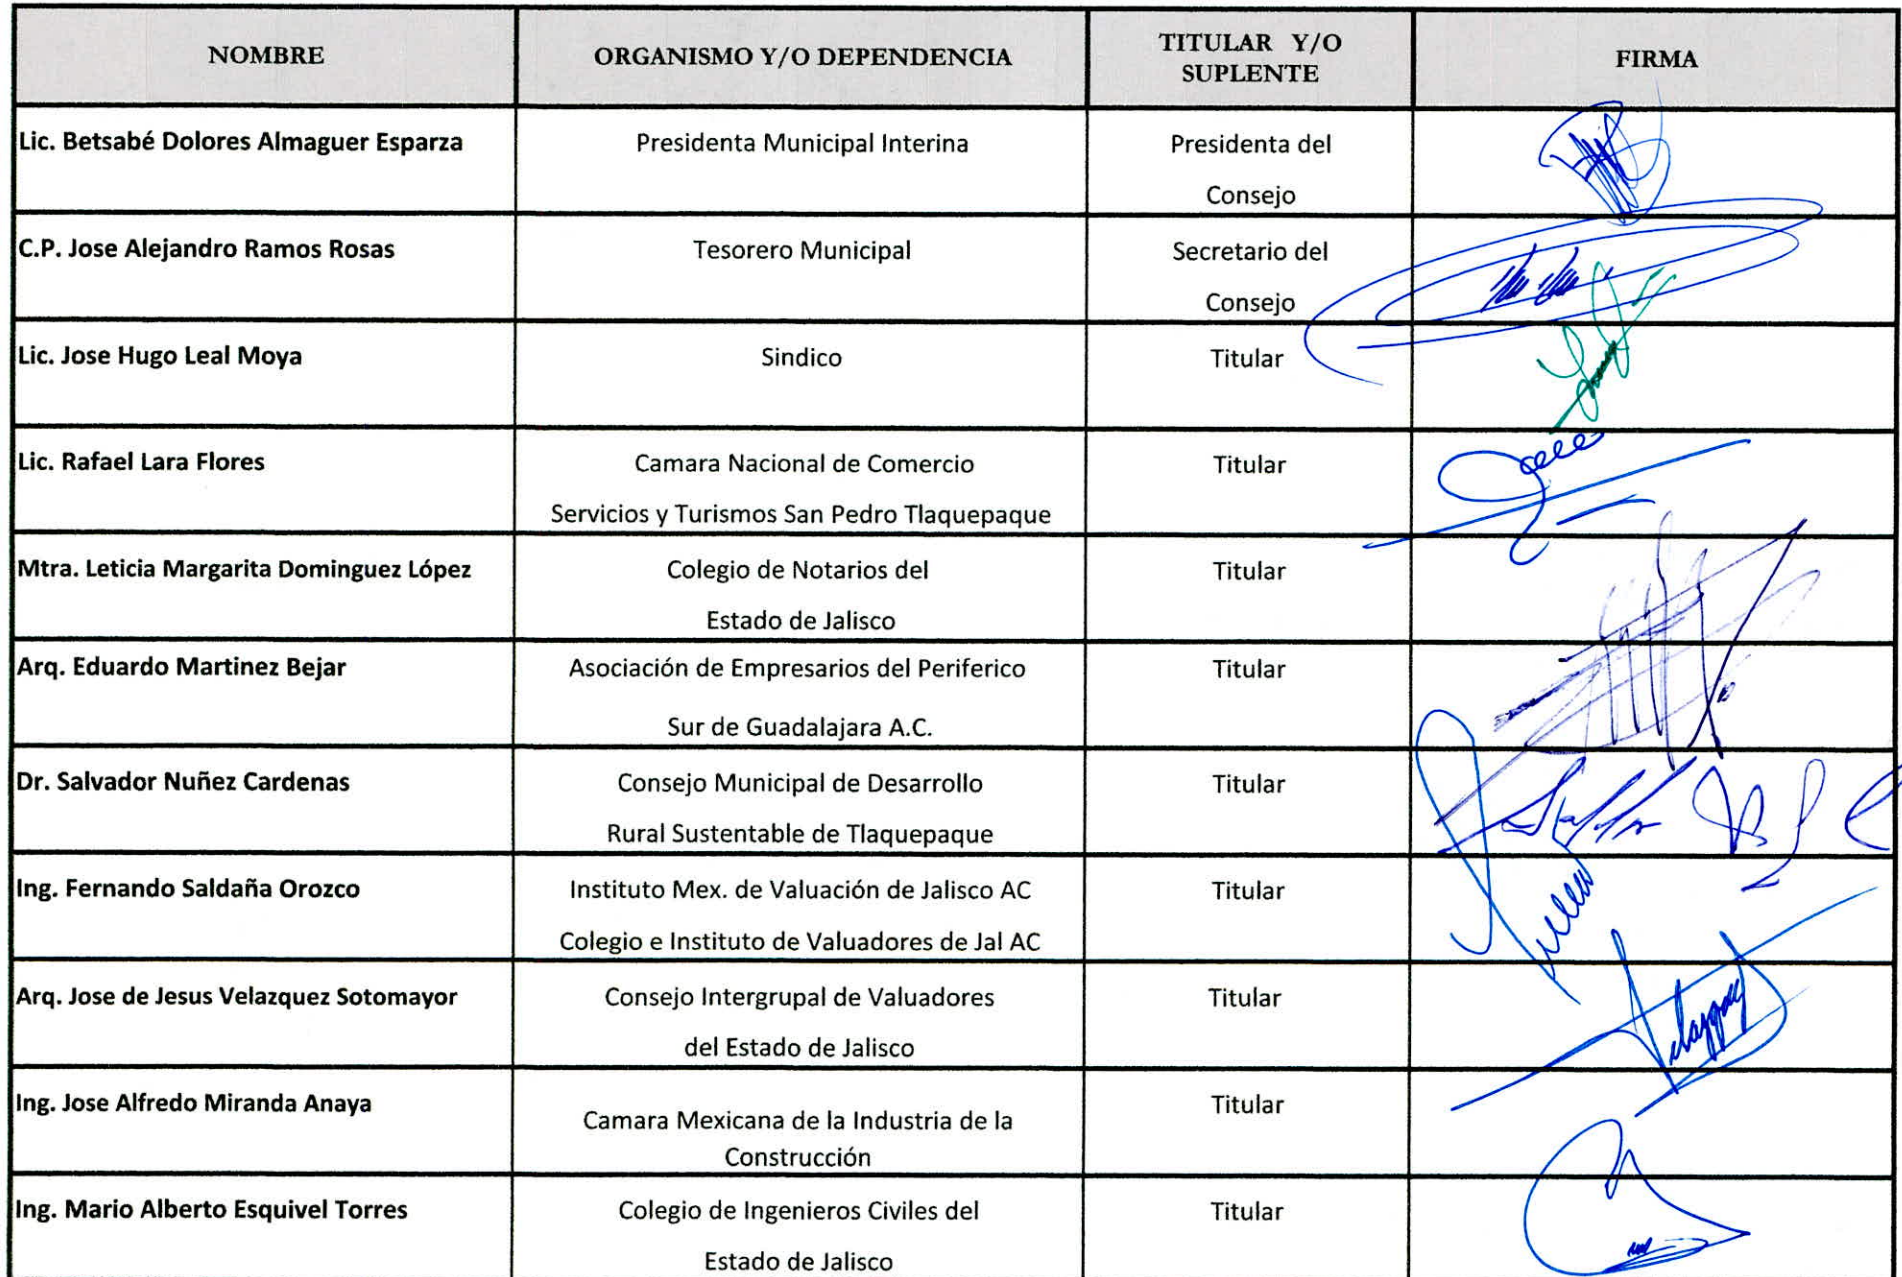 NOMBRE
ORGANISMO Y/O DEPENDENCIA
TITULAR Y/O
SUPLENTE
FIRMA
Lic. Betsabé Dolores Almaguer Esparza
Presidenta Municipal Interina
Presidenta del
Consejo
C.P. Jose Alejandro Ramos Rosas
Tesorero Municipal
Secretario del
Consejo
Lic. Jose Hugo Leal Moya
Sindico
Titular
Lic. Rafael Lara Flores
Camara Nacional de Comercio
Servicios y Turismos San Pedro Tlaquepaque
Titular
Mtra. Leticia Margarita Dominguez López
Colegio de Notarios del
Estado de Jalisco
Titular
Arq. Eduardo Martinez Bejar
Asociación de Empresarios del Periferico
Sur de Guadalajara A.C.
Titular
Dr. Salvador Nuñez Cardenas
Consejo Municipal de Desarrollo
Rural Sustentable de Tlaquepaque
Titular
Ing. Fernando Saldaña Orozco
Instituto Mex. de Valuación de Jalisco AC
Colegio e Instituto de Valuadores de Jal AC
Titular
Arq. Jose de Jesus Velazquez Sotomayor
Consejo Intergrupal de Valuadores
del Estado de Jalisco
Titular
Ing. Jose Alfredo Miranda Anaya
Camara Mexicana de la Industria de la
Construcción
Titular
Ing. Mario Alberto Esquivel Torres
Colegio de Ingenieros Civiles del
Estado de Jalisco
Titular